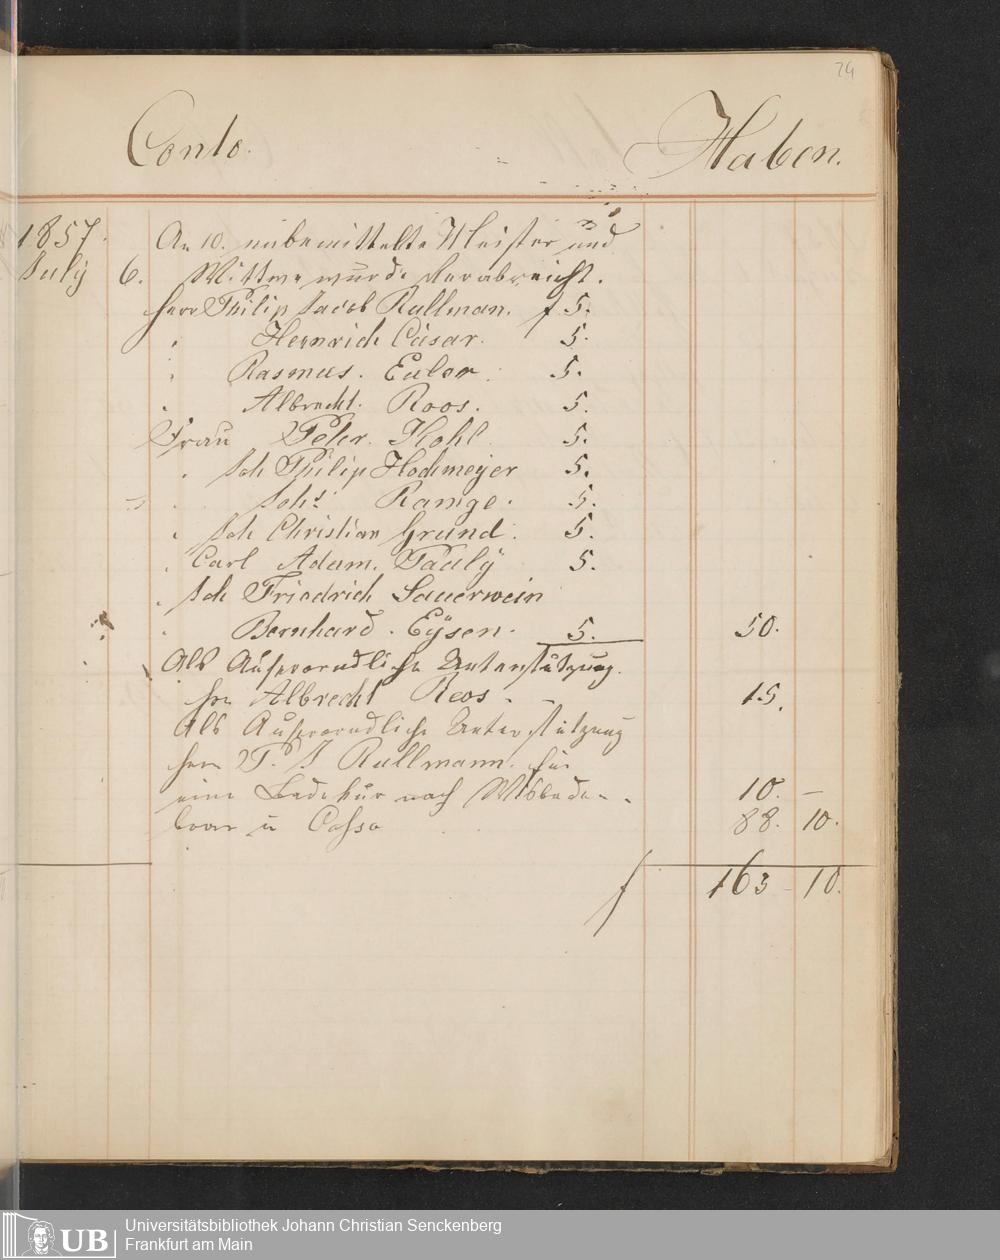 74
Conto. Haben.
1857. An 10. unbemittelte Meister und
July 6. Wittwe wurde verabreicht.
Herr Philip Jacob Rullman. f 5.
" Heinrich Cäsar. 5.
" Rasmus. Euler. 5.
" Albrecht. Roos. 5.
Frau Peter. Kohl. 5.
" Joh Philip Hochmeÿer 5.
" Johs Ramge. 5.
" Joh Christian Grund. 5.
" Carl Adam. Pauly 5.
" Joh Friedrich Sauerwein
" Bernhard. Eÿsen. 5. 50.
Als Auserordliche Unterstützung.
Hrn Albrecht Roos. - 15.
Als Auserordliche Unterstützung
Herrn P. J Rullmann. für
eine Badekur nach Wisbaden. 10. –
baar in Cassa 88. 10.
f 163 – 10.
Universitätsbibliothek Johann Christian Senckenberg
UB Frankfurt am Main